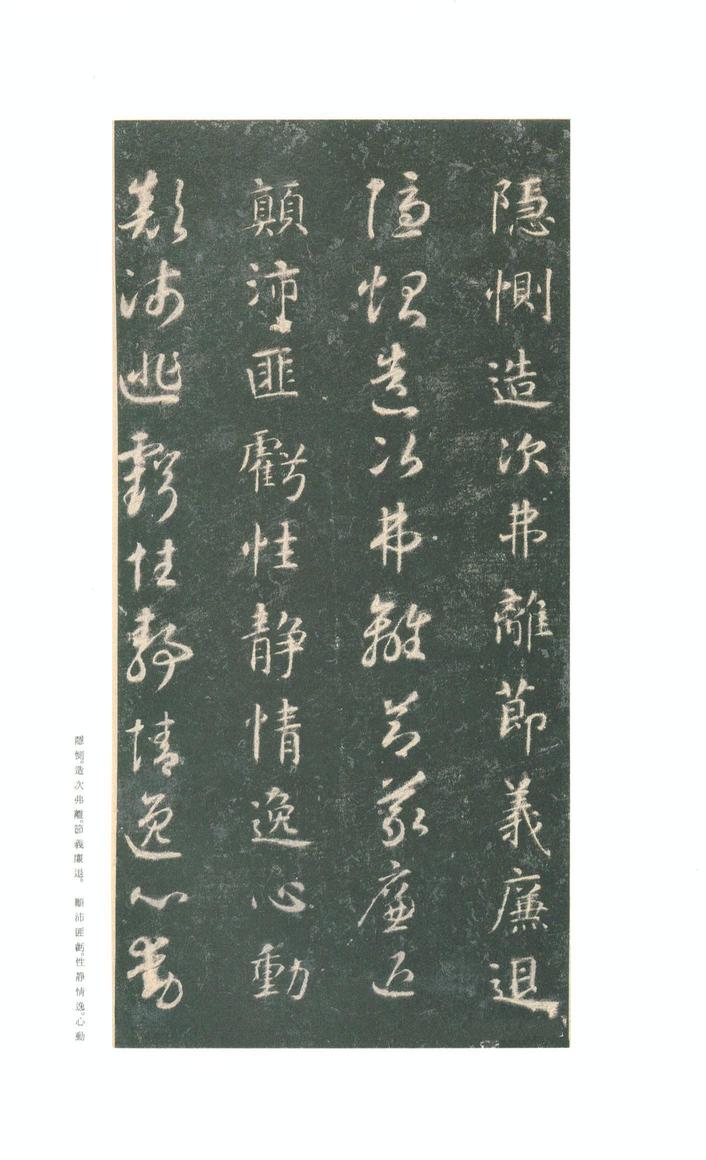 隱惻造次弗離節義廉退
隱惻造次弗離節義廉退
顛沛匪虧性靜情逸心動
顛沛匪虧性靜情逸心動
隱惻。造次弗離。節義廉退。 顛沛匪虧。性靜情逸。心動